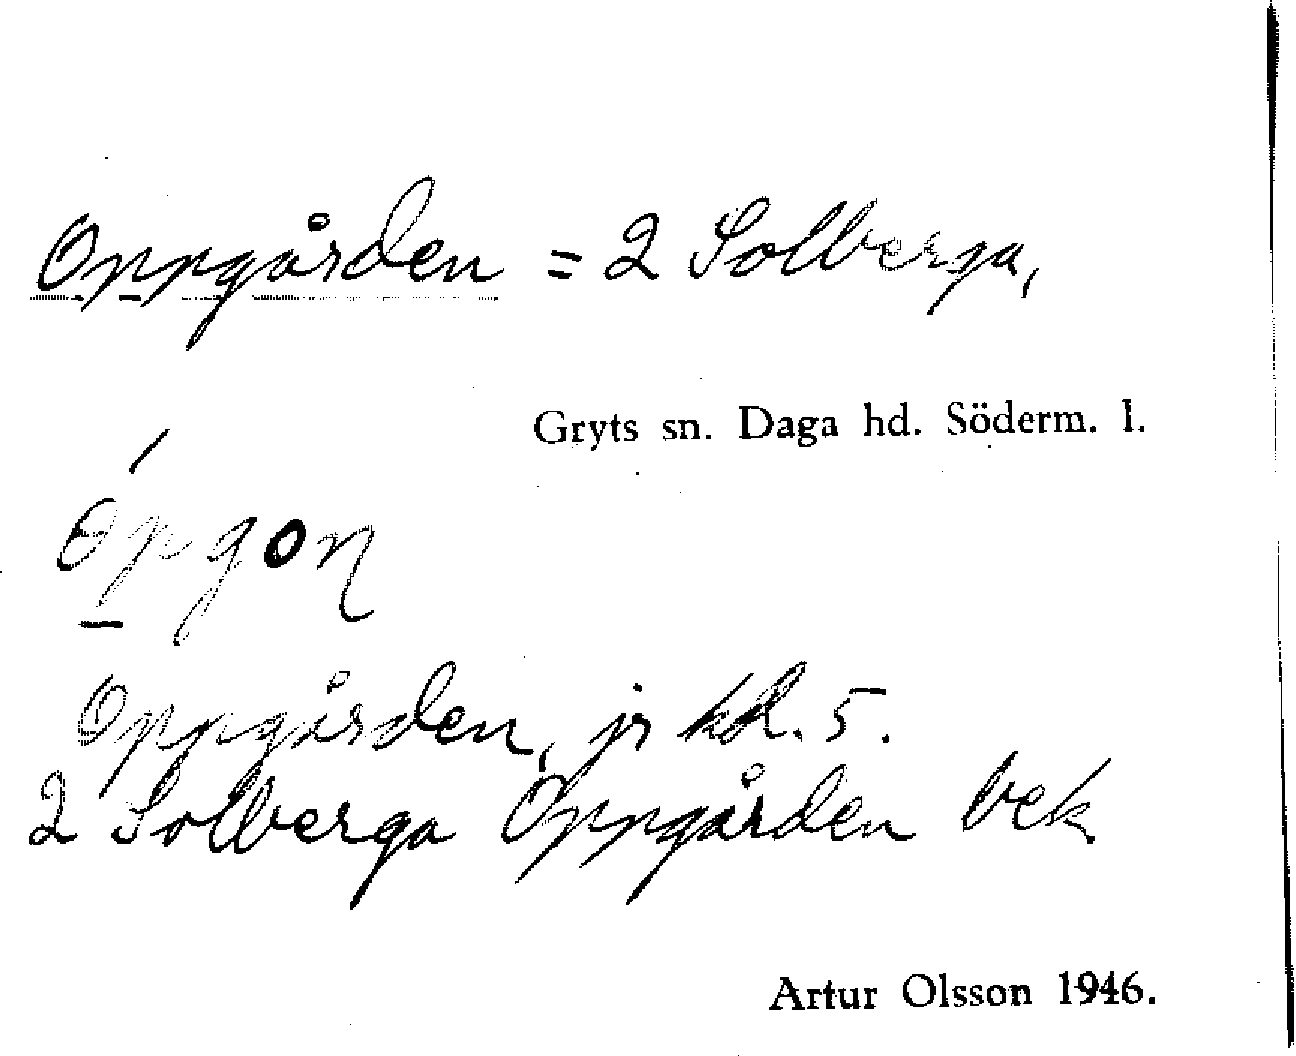 Oppgården = 2 Solberga,
Gryts sn. Daga hd. Söderm. l.
òpgon
Oppgården, jr kd. 5.
2 Solberga Oppgården bek
Artur Olsson 1946.